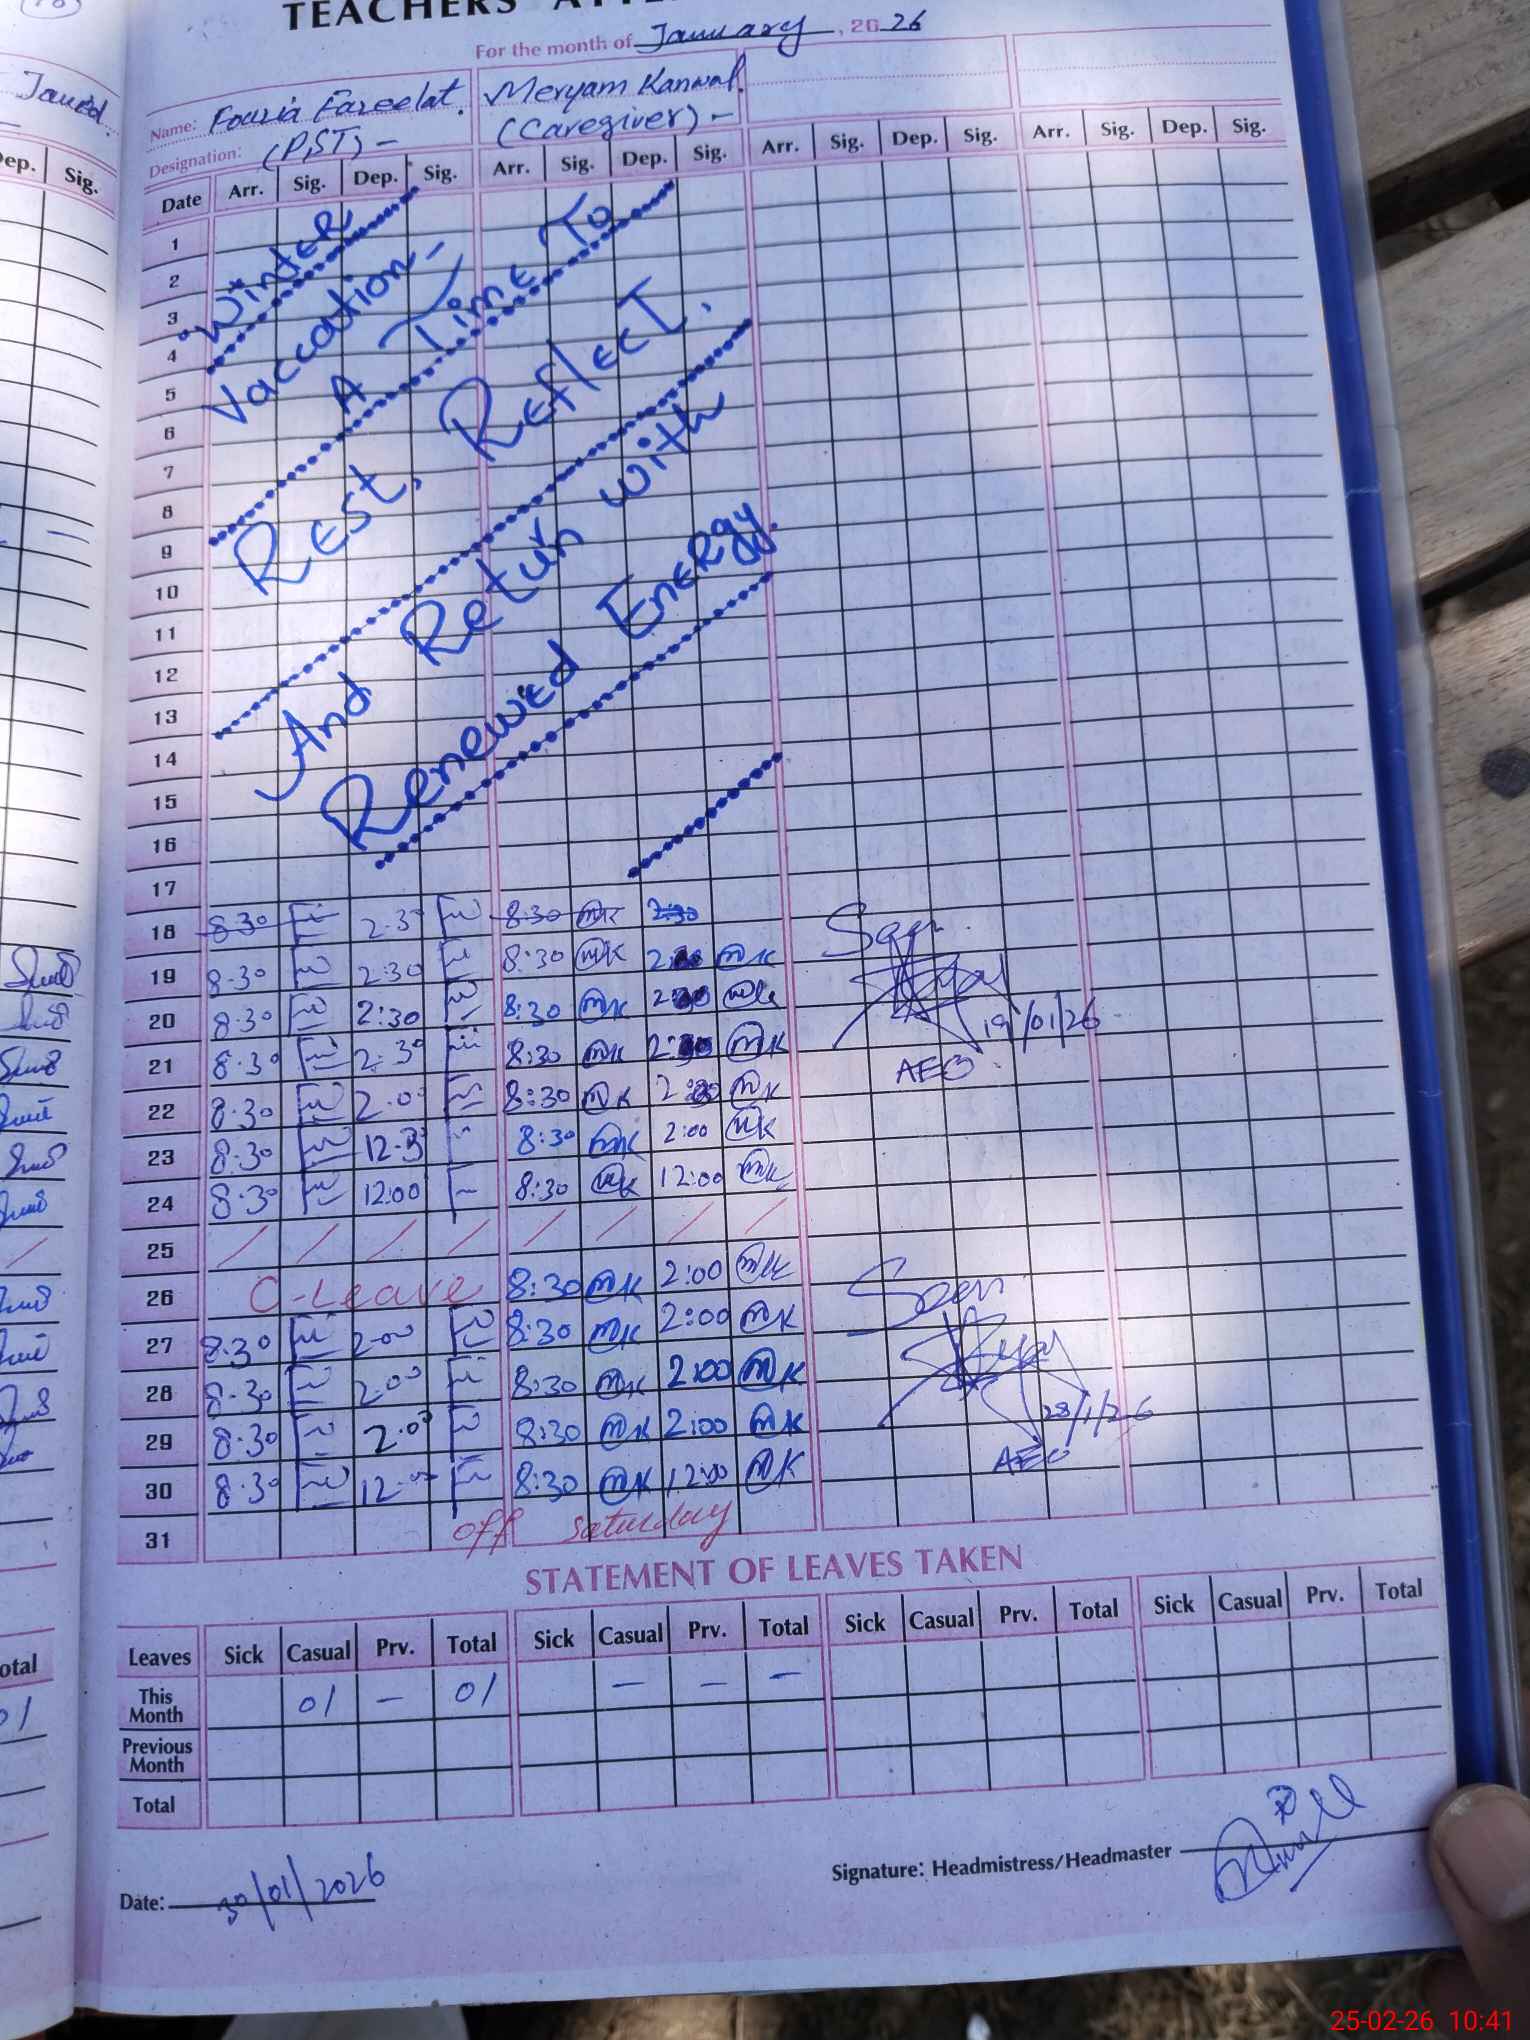 TEACHERS'
For the month of January, 2026
Name: Fouzia Fazeelat. Meryam Kanwal.
Designation: (PST) - (Caregiver) -
Date Arr. Sig. Dep. Sig. Arr. Sig. Dep. Sig. Arr. Sig. Dep. Sig. Arr. Sig. Dep. Sig.
1
2
3
4
5
6
7
8
9
10
11
12
13
14
15
16
17
"Winter
Vaccation -
A Time To
Rest, Reflect,
And Return with
Renewed Energy.
18 8:30 2:30 8:30 MK 2:30
19 8:30 2:30 8:30 MK MK
20 8:30 2:30 8:30 MK
21 8:30 2:30 8:30 MK MK
22 8:30 2:00 8:30 MK MK
23 8:30 12:30 8:30 MK 2:00 MK
24 8:30 12:00 8:30 MK 12:00 MK
25 / / / / / / / /
26 C-Leave 8:30 MK 2:00 MK
27 8:30 2:00 8:30 MK 2:00 MK
28 8:30 2:00 8:30 MK 2:00 MK
29 8:30 2:00 8:30 MK 2:00 MK
30 8:30 12:00 8:30 MK 12:00 MK
31 off Saturday
Seen
19/01/26
AEO
Seen
28/1/26
AEO
STATEMENT OF LEAVES TAKEN
Leaves Sick Casual Prv. Total Sick Casual Prv. Total Sick Casual Prv. Total Sick Casual Prv. Total
This Month 01 - 01 - - -
Previous Month
Total
Date: 30/01/2026
Signature: Headmistress/Headmaster
Javed
Dep. Sig.
Total
01
25-02-26 10:41